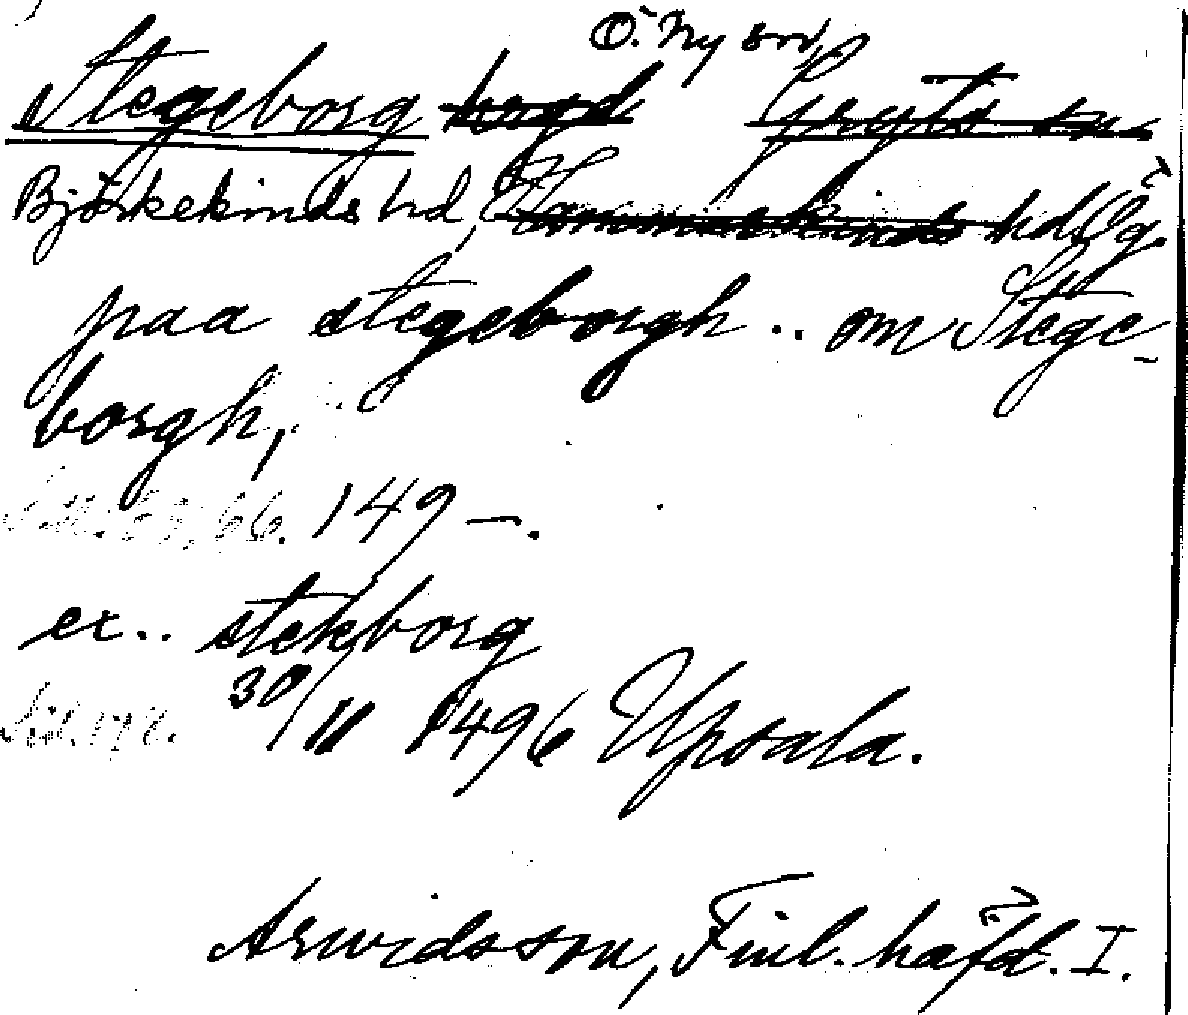 Ö. Ny sn,
Stegeborg hogd Gryts sn
Björkekinds hd, Hammarkinds hd Ög.
paa stegeborgh .. om Stege-
borgh,
66. 149-.
ex.. stekborg
30/11 1496 Upsala.
Arwidsson, Finl. häfd. I.